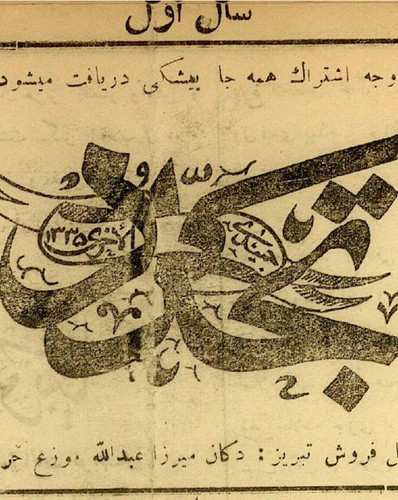 سال اول
وجه اشتراك همه جا پیشکی دریافت میشود
تجدد
جمیدی
الاخری ۱۳۳۵
فروش تبریز : دکان میرزا عبدالله موزع